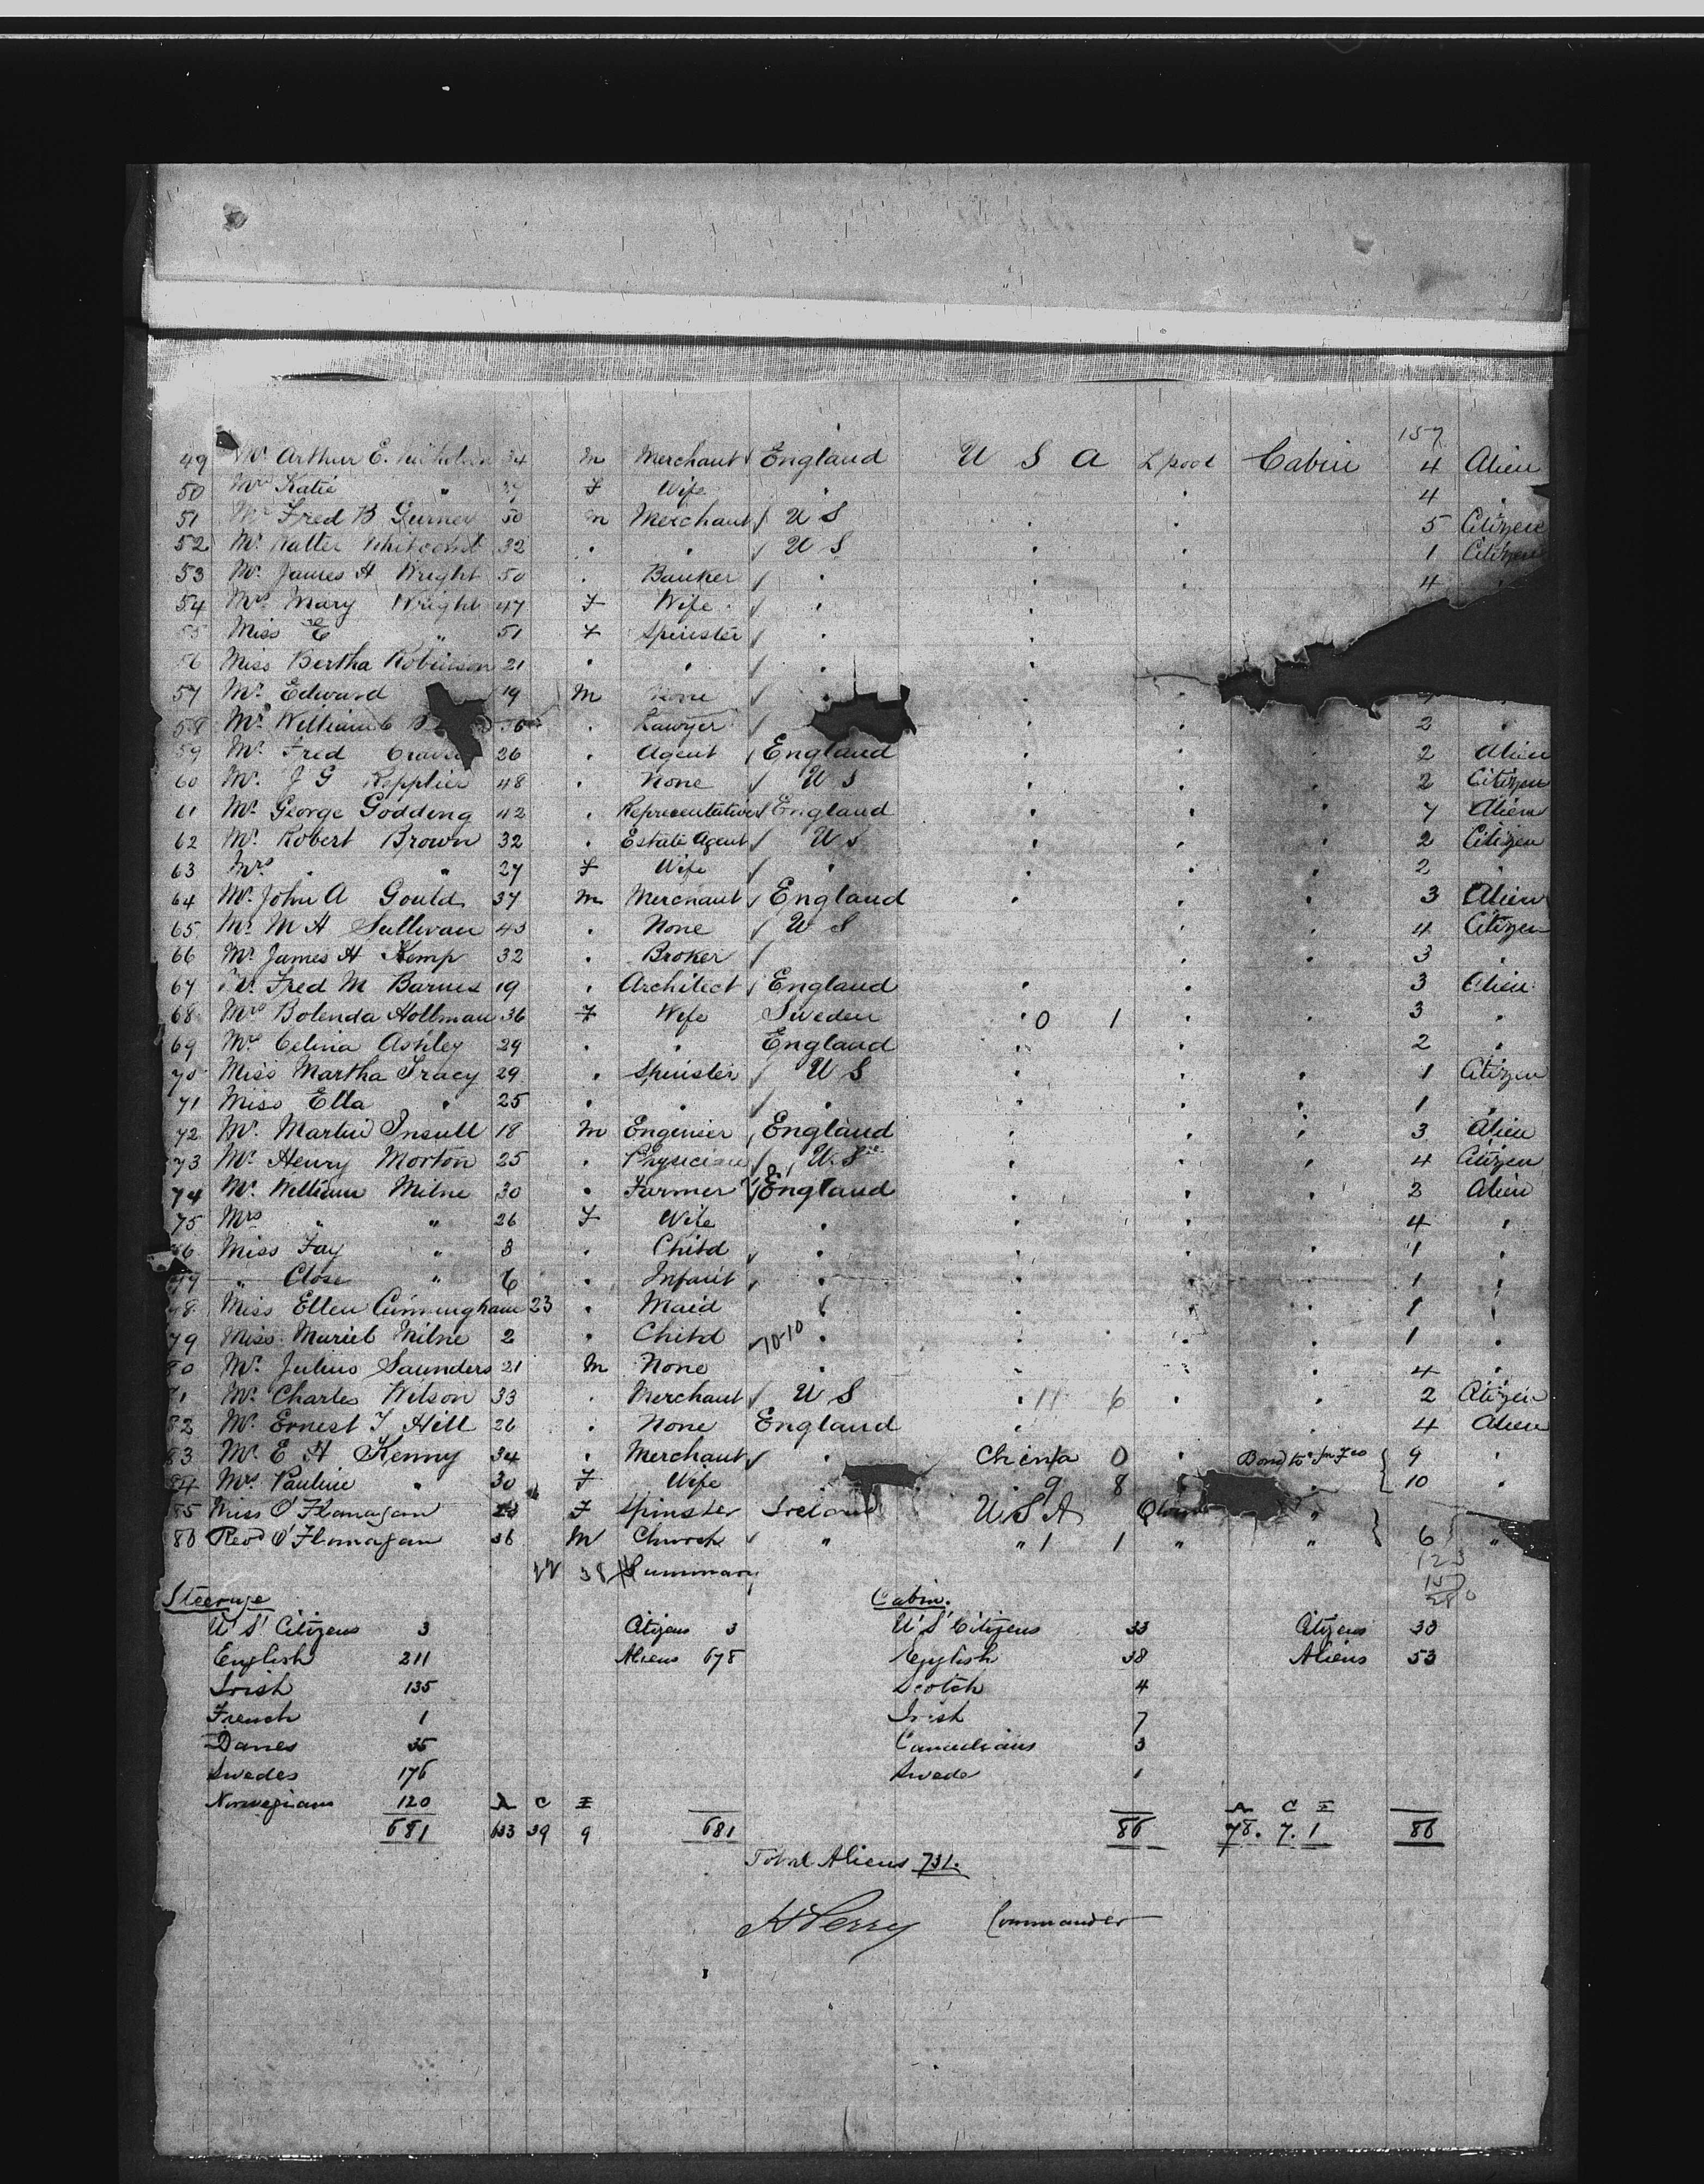 157
49 Mr Arthur E. 34 M Merchant England U S A Lpool Cabin 4 Alien
50 Mrs Katie " F Wife " " 4 "
51 Mr Fred B Gurney 50 M Merchant U S " " 5 Citizen
52 Mr Walter Whitcomb 32 " " U S " " 1 Citizen
53 Mr. James H Wright 50 " Banker " " " 4 "
54 Mrs Mary Wright 47 F Wife " "
55 Miss E " 51 F Spinster " "
56 Miss Bertha Robinson 21 " " " "
57 Mr. Edward 19 M None "
58 Mr William C 56 " Lawyer " " 2 "
59 Mr. Fred 26 " Agent England " " " 2 Alien
60 Mr. J G Repplier 48 " None U S " " " 2 Citizen
61 Mr. George Godding 42 " Representative England " " " 7 Alien
62 Mr. Robert Brown 32 " Estate Agent U S " " " 2 Citizen
63 Mrs " " 27 F Wife " " " " 2 "
64 Mr. John A Gould 37 M Merchant England " " " 3 Alien
65 Mr M H Sullivan 43 " None U S " " 4 Citizen
66 Mr James H Kemp 32 " Broker " " 3 "
67 Mr. Fred M Barnes 19 " Architect England " " 3 Alien
68 Mrs Bolenda Hollman 36 F Wife Sweden " 0 1 " " 3 "
69 Mrs Celina Ashley 29 " " England " " 2 "
70 Miss Martha Tracy 29 " Spinster U S " " " 1 Citizen
71 Miss Ella " 25 " " " " " " 1 "
72 Mr. Martin Insull 18 M Engineer England " " " 3 Alien
73 Mr. Henry Morton 25 " Physician U.S. " " " 4 Citizen
74 Mr. William Milne 30 " Farmer England " " " 2 Alien
75 Mrs " " 26 F Wife " " " " 4 "
76 Miss Fay " 3 " Child " " " " 1 "
77 " Close " 6 " Infant " " " 1 "
78 Miss Ellen Cunningham 23 " Maid " " " 1 "
79 Miss Muriel Milne 2 " Child 10-10 " " " " 1 "
80 Mr. Julius Saunders 21 M None " " " " 4 "
81 Mr. Charles Wilson 33 " Merchant U S " 11 6 " " 2 Citizen
82 Mr. Ernest T Hill 26 " None England " " 4 Alien
83 Mr. E H Kenny 34 " Merchant " China 0 " Bond to 9 "
84 Mrs. Pauline " 30 F Wife 9 8 " " 10 "
85 Miss O'Flanagan F Spinster Ireland U S A "
86 Revd O'Flanagan 36 M Church " " 1 1 " " 6 "
Summary
Steerage Cabin.
U S Citizens 3 Citizens 3 U S Citizens 33 Citizens 33
English 211 Aliens 678 English 38 Aliens 53
Irish 135 Scotch 4
French 1 Irish 7
Danes 35 Canadians 3
Swedes 176 Swede 1
Norwegians 120 A C I A C I
681 633 39 9 681 86 78. 7. 1 86
Total Aliens 731.
H Perry Commander